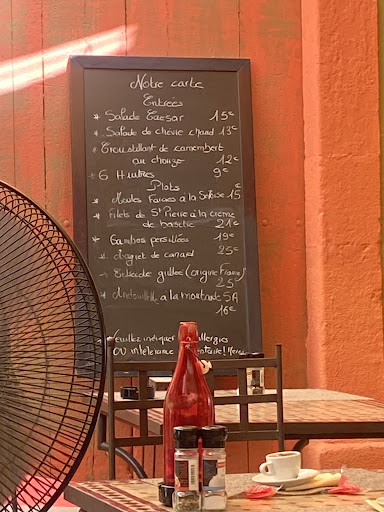 Notre carte
Entrées
* Salade Caesar 15€
* Salade de chèvre chaud 13€
* Croustillant de camembert
au chorizo 12€
* 6 Huîtres 9€
Plats
* Moules Farcies à la Sétoise 15€
* Filets de St Pierre à la crème
de 21€
* Gambas persillées 19€
* Magret de canard 25€
* Entrecôte grillée (origine France)
25€
* Andouillette à la moutarde 5A
16€
* Veuillez indiquer allergies
OU intolérance alimentaire! Merci